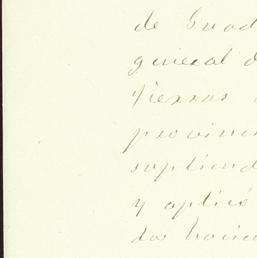 de Guad
general d
tierras
provinc
supliend
y aplicó
dos hacien